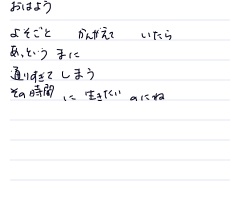 おはよう
よそごと かんがえて いたら
あっという まに
通りすぎて しまう
その時間 に 生きたい のにね